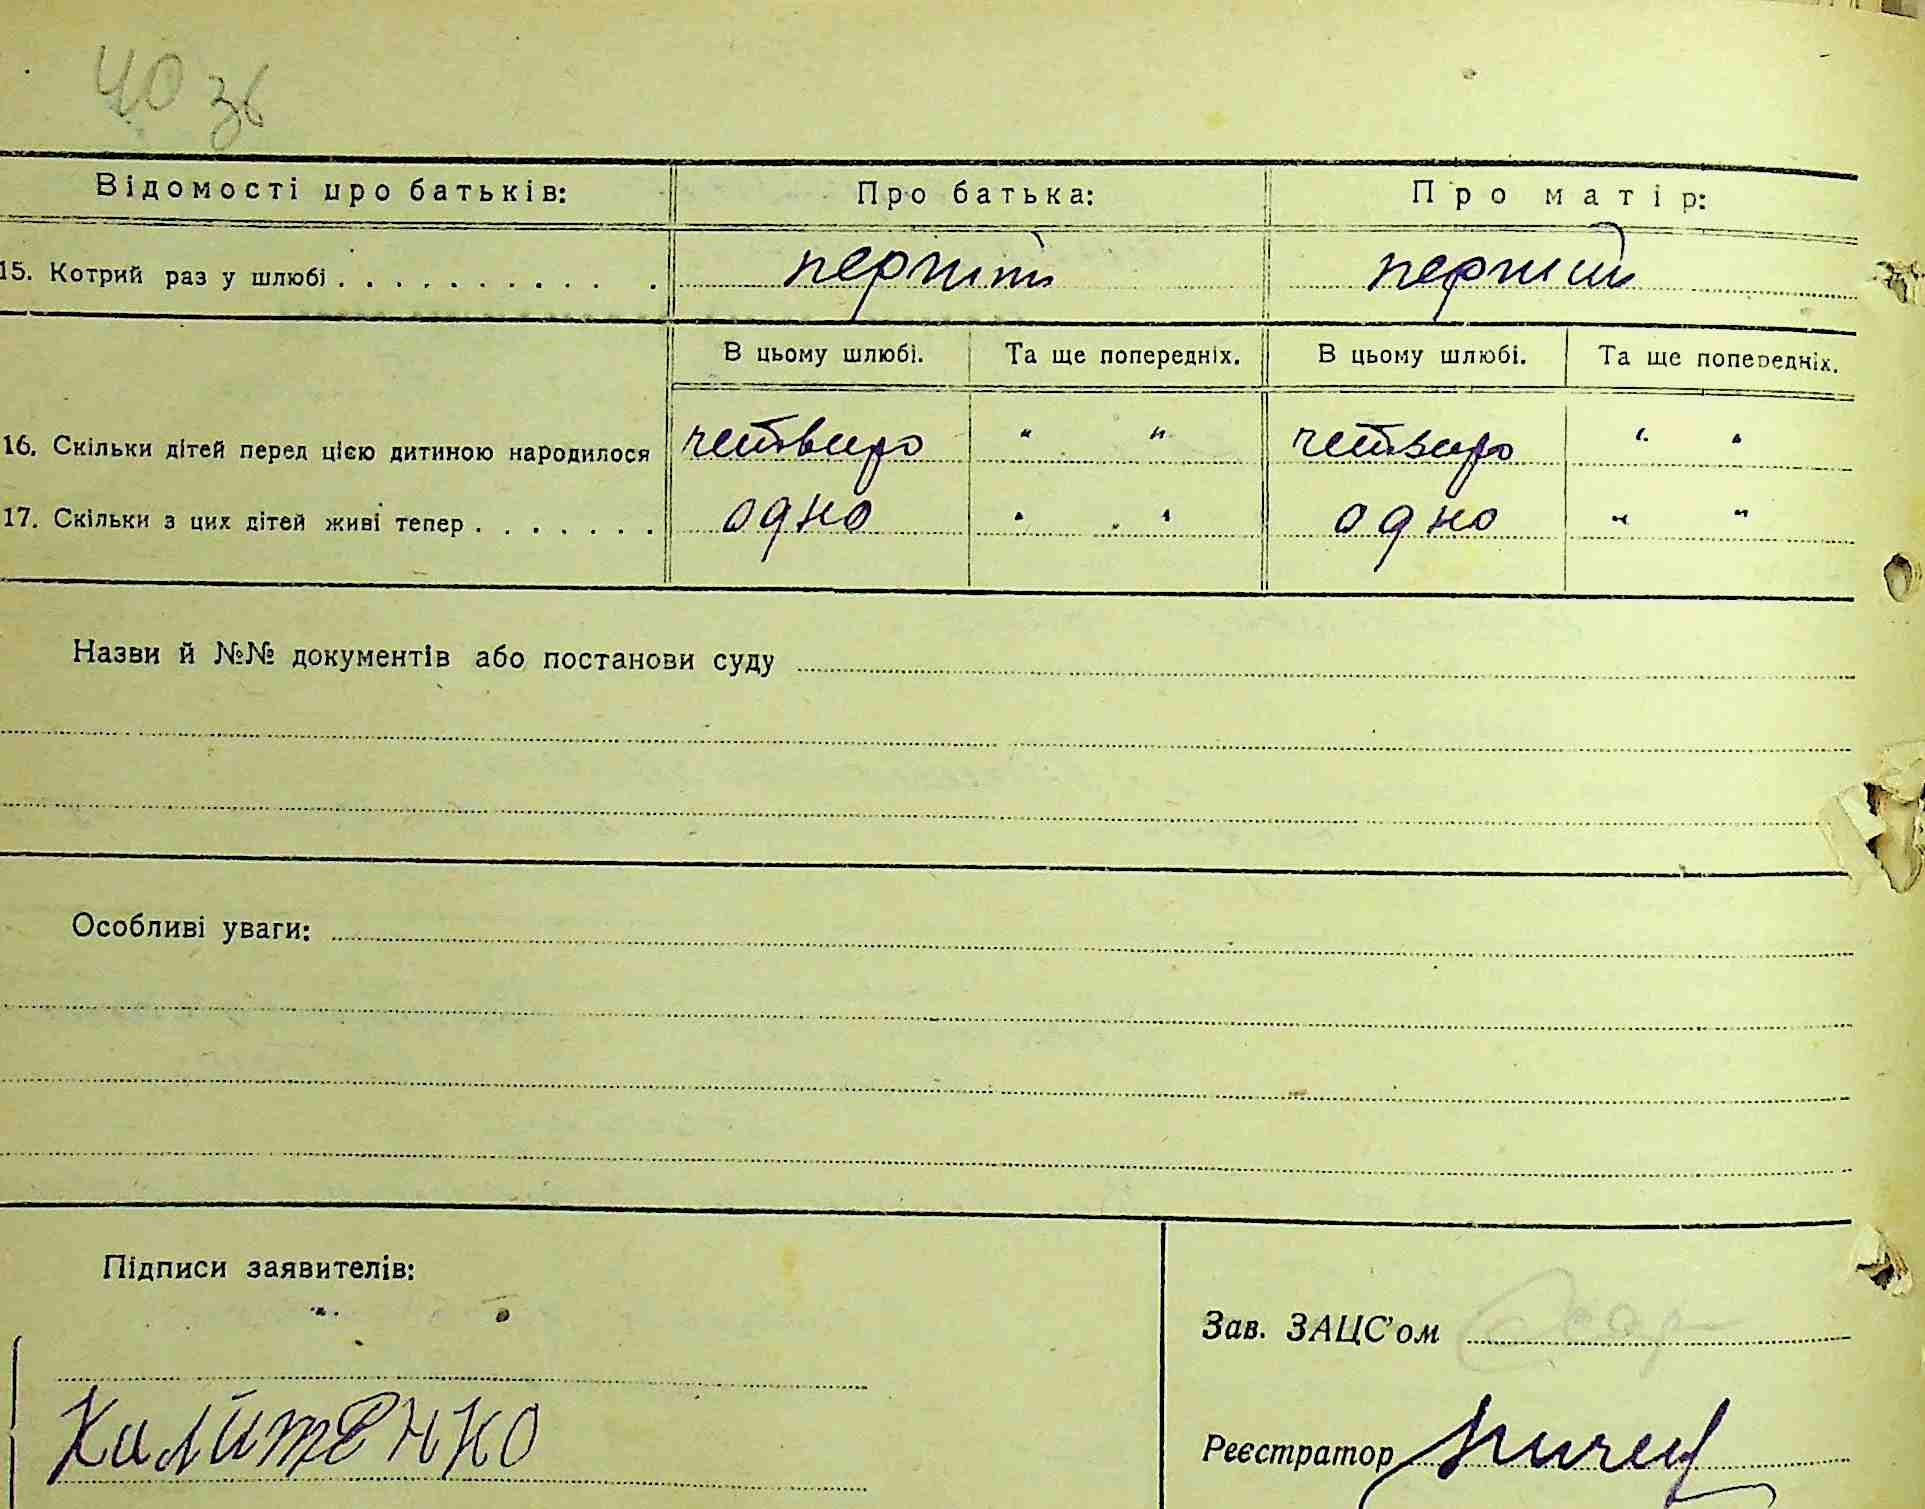 40 зв
Відомості про батьків: Про батька: Про матір:
15. Котрий раз у шлюбі . . . . . . . . . . . . перший перший
В цьому шлюбі. Та ще попередніх. В цьому шлюбі. Та ще попередніх.
16. Скільки дітей перед цією дитиною народилося четверо " " четверо " "
17. Скільки з цих дітей живі тепер . . . . . . . одно " " одно " "
Назви й №№ документів або постанови суду
Особливі уваги:
Підписи заявителів:
Зав. ЗАЦС'ом
Калитенко
Реєстратор